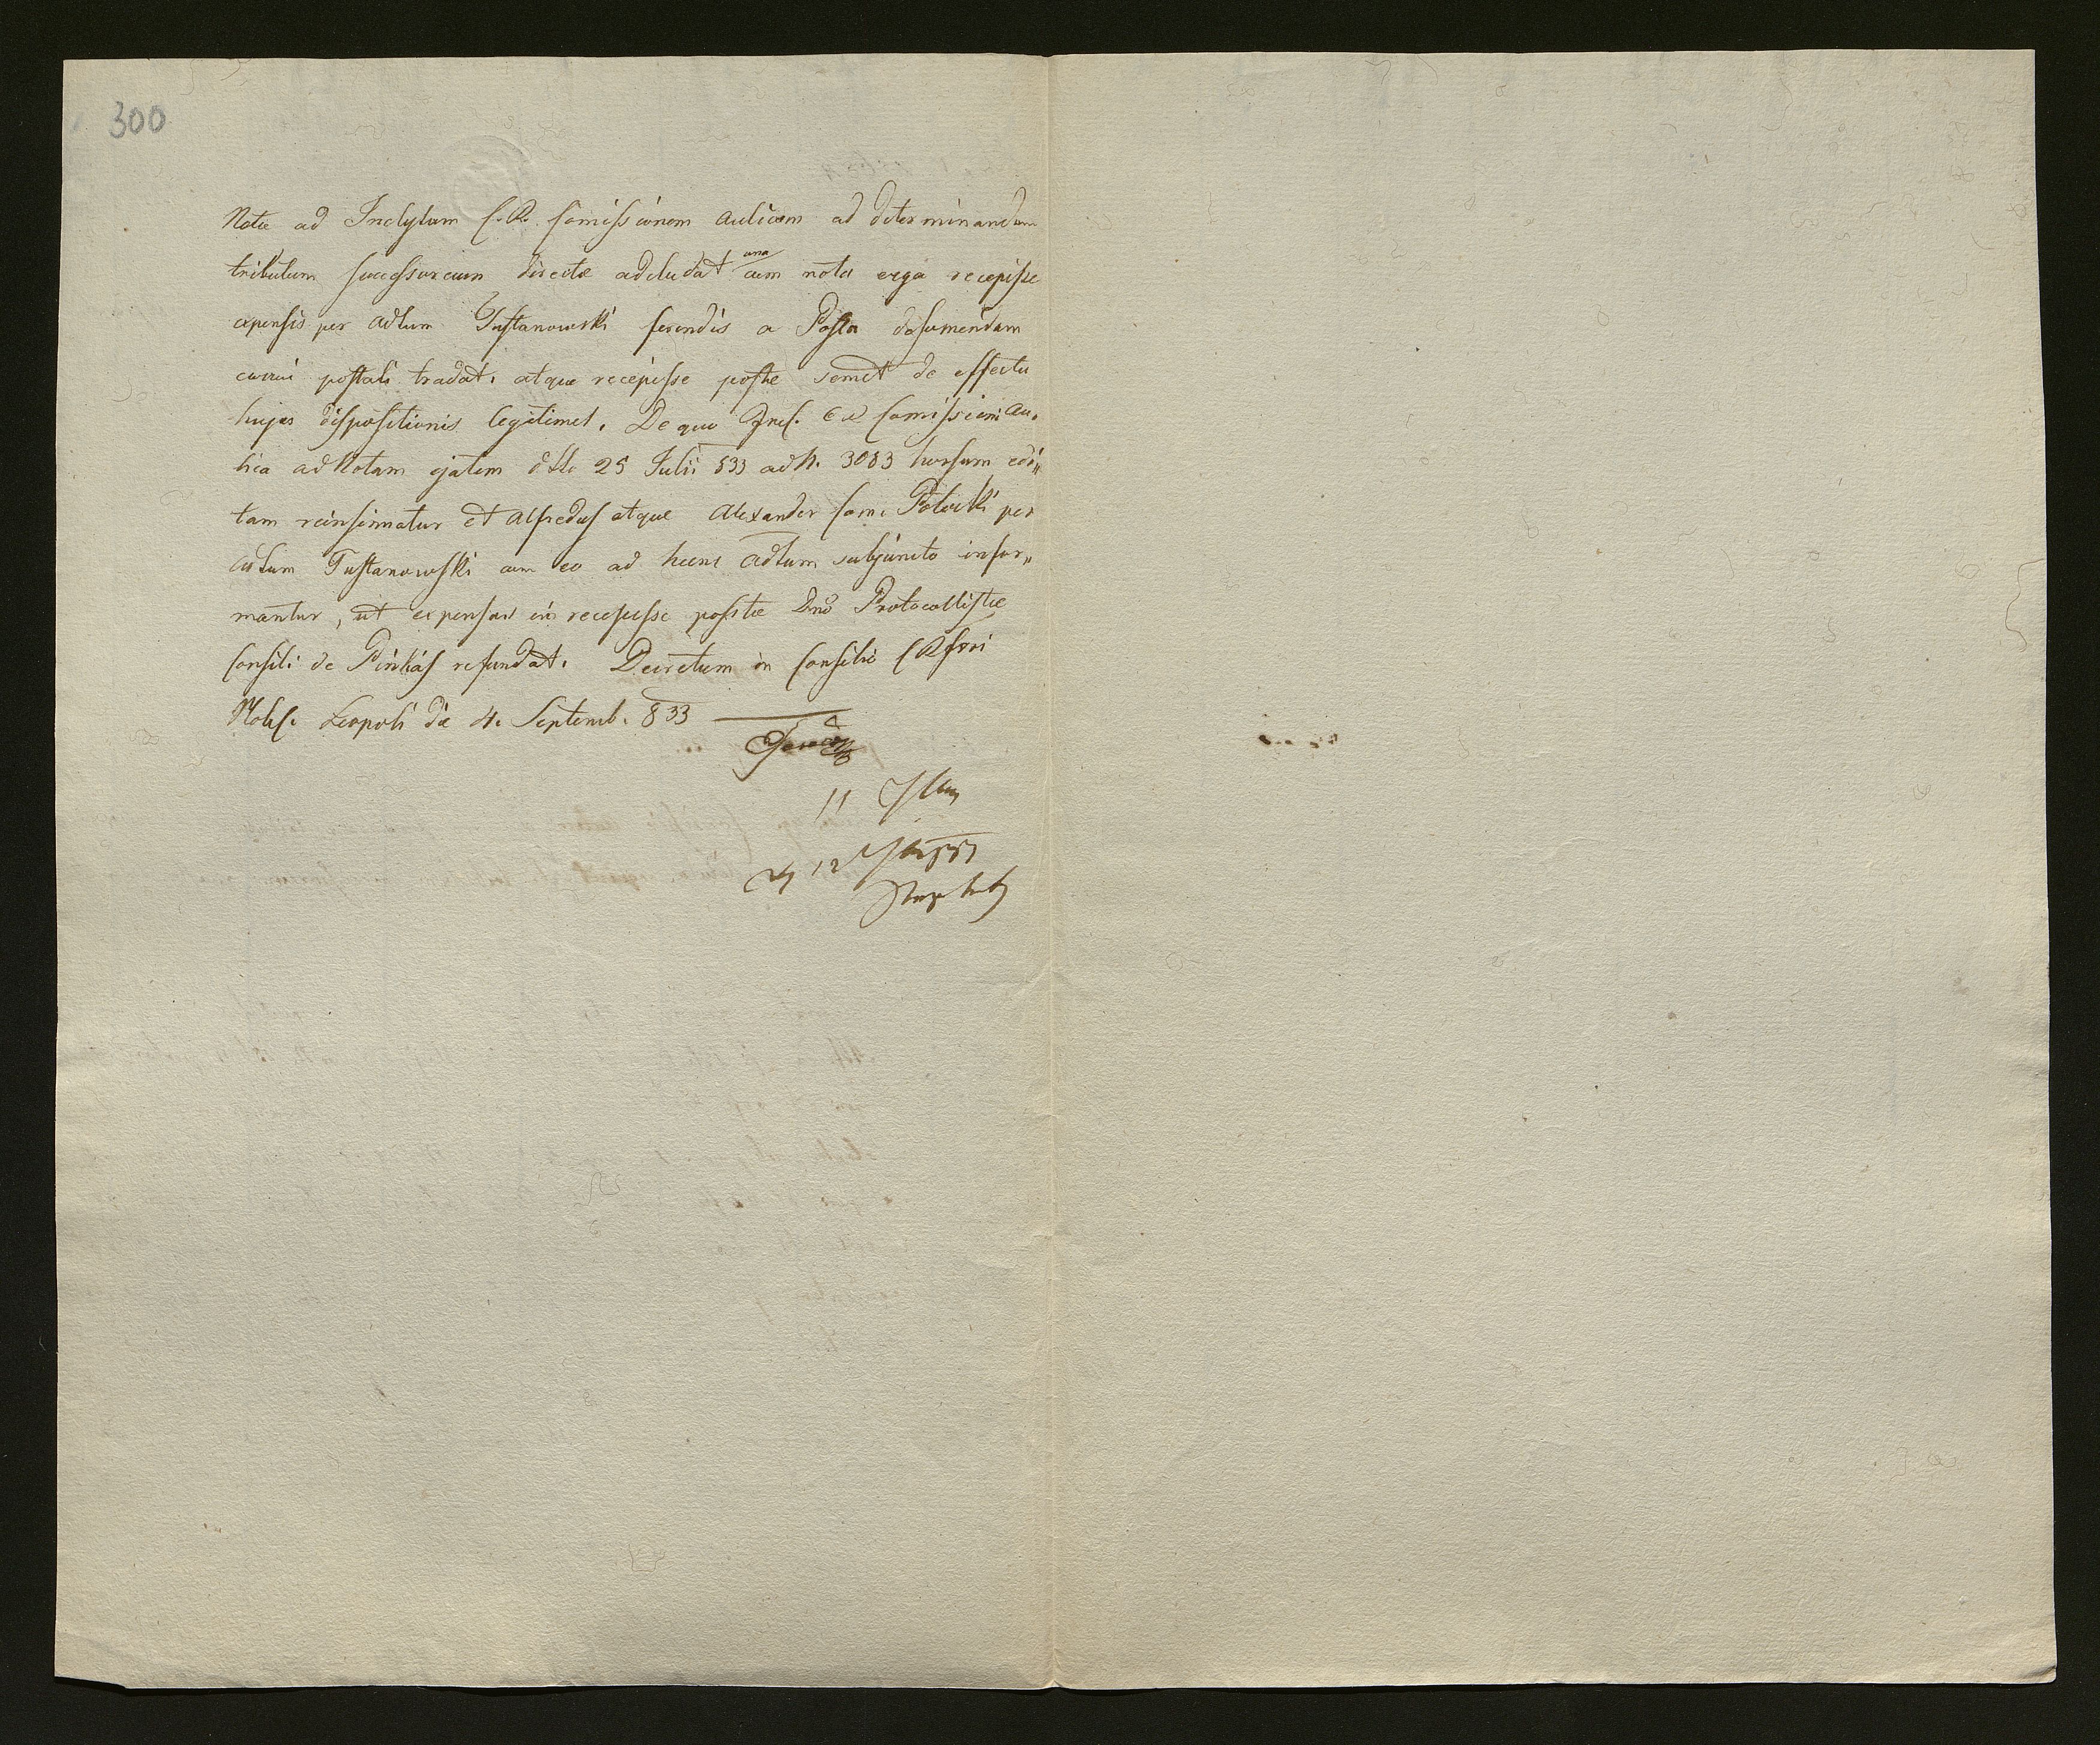 300
Notae ad Inclytam C. R. Comissionem Aulicam ad determinandum
tributum successorium directae adcludat una cum nota erga recepisse
expensis per Adtum Tustanowski ferendis a Posta desumendam
currui postali tradat, atque recepisse postae semet de effectu
hujus dispositionis legitimet. De quo Incl. CR Comissioni Au-
lica ad Notam ejatem dtto 25 Julii 833 ad N. 3083 horsum edi„
tam reinsinuatur et Alfredus atque Alexander Com. Potocki per
Adtum Tustanowski cum eo ad hunc Adtum subjuncto infor„
mantur, ut expensas in recepisse postae Dno Protocollistae
Consili de Pinkas refundat. Decretum in Consilio CR fori
Nobil. Leopoli die 4. Septemb. 833
11
12